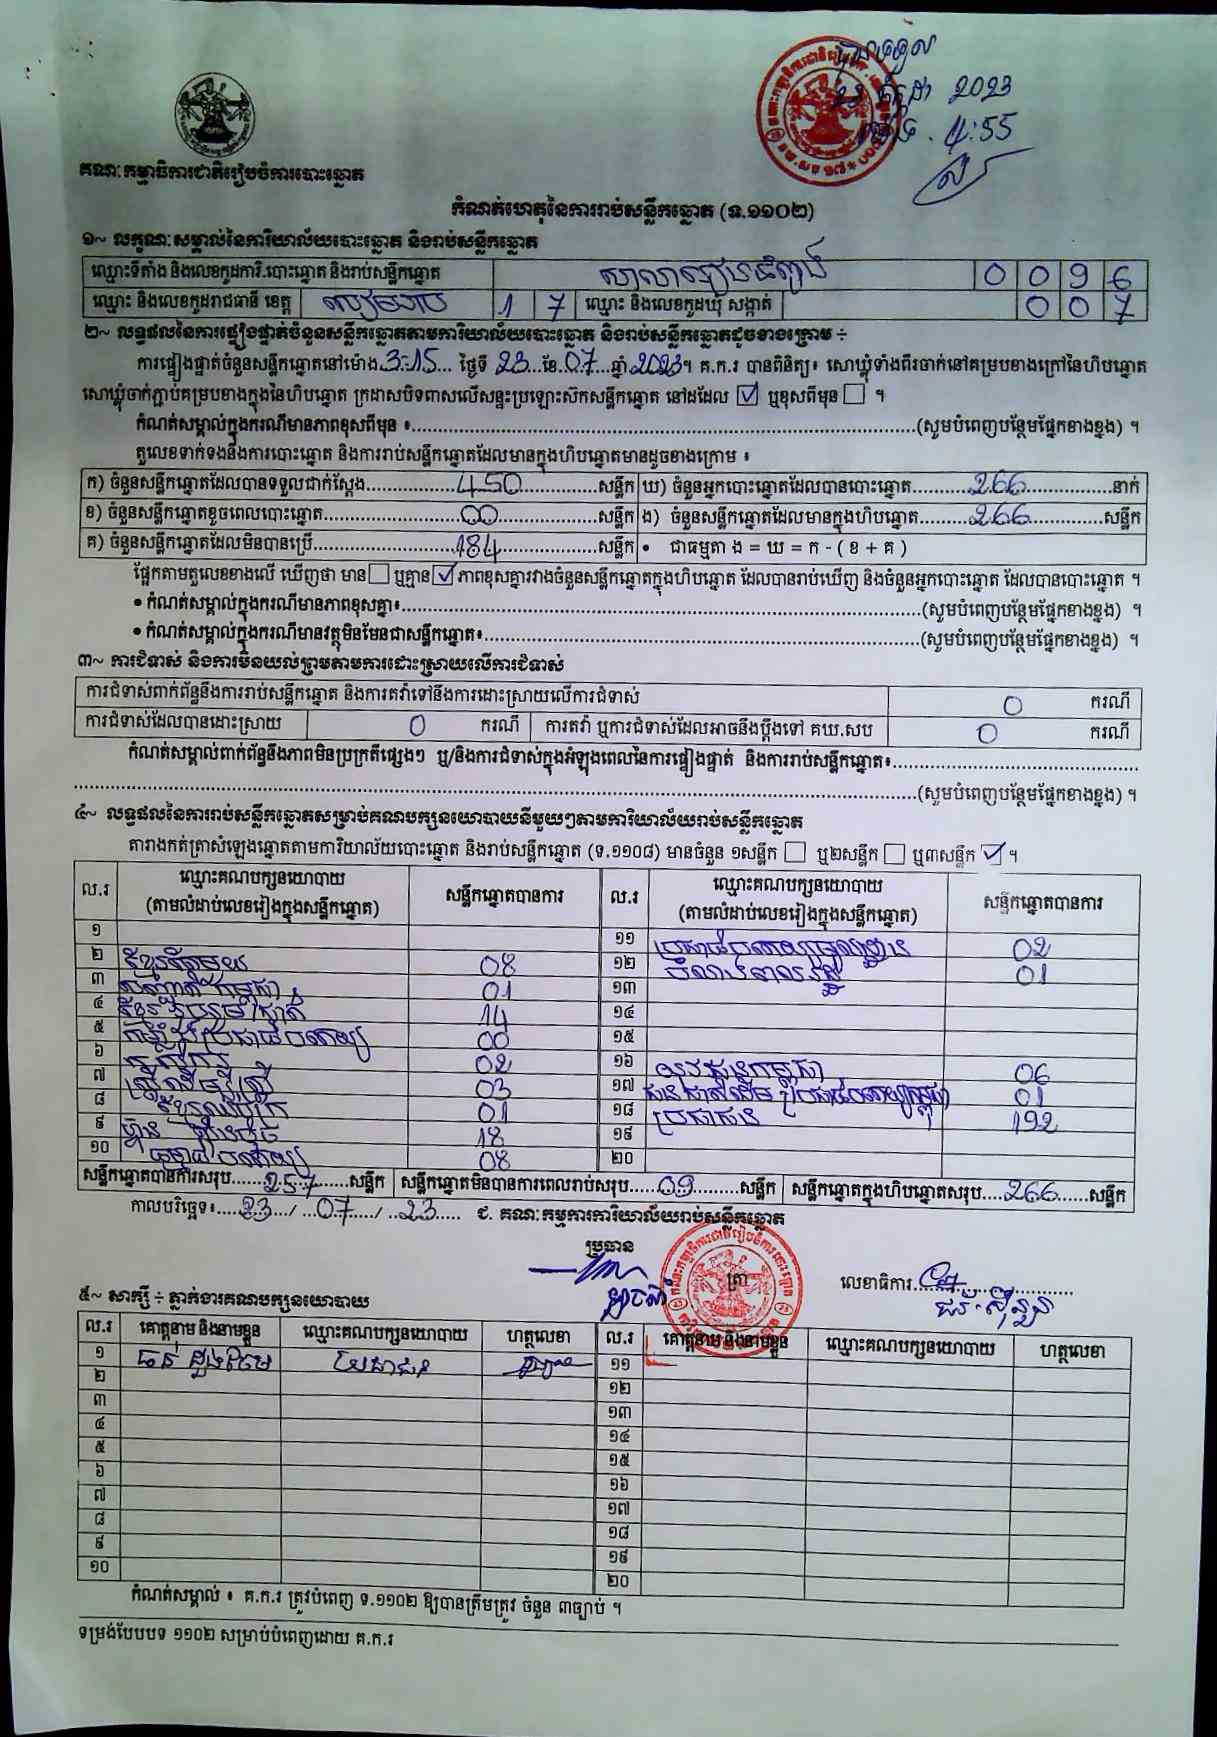 2023
4:55
គណៈកម្មាធិការជាតិរៀបចំការបោះឆ្នោត
កំណត់ហេតុនៃការរាប់សន្លឹកឆ្នោត (ទ.១១០២)
១~ លក្ខណៈសម្គាល់នៃការិយាល័យបោះឆ្នោត និងរាប់សន្លឹកឆ្នោត
ឈ្មោះទីតាំង និងលេខកូដការិ.បោះឆ្នោត និងរាប់សន្លឹកឆ្នោត 0 0 9 6
ឈ្មោះ និងលេខកូដរាជធានី ខេត្ត សៀមរាប 1 7 ឈ្មោះ និងលេខកូដឃុំ សង្កាត់ 0 0 7
២~ លទ្ធផលនៃការផ្ទៀងផ្ទាត់ចំនួនសន្លឹកឆ្នោតតាមការិយាល័យបោះឆ្នោត និងរាប់សន្លឹកឆ្នោតដូចខាងក្រោម ÷
ការផ្ទៀងផ្ទាត់ចំនួនសន្លឹកឆ្នោតនៅម៉ោង 3:15 ថ្ងៃទី 23 ខែ 07 ឆ្នាំ 2023។ គ.ក.រ បានពិនិត្យ៖ សោឃ្លុំទាំងពីរចាក់នៅគម្របខាងក្រៅនៃហិបឆ្នោត
សោឃ្លុំចាក់ភ្ជាប់គម្របខាងក្នុងនៃហិបឆ្នោត ក្រដាសបិទពាសលើសន្ទះប្រឡោះស៊កសន្លឹកឆ្នោត នៅដដែល ☑ ឬខុសពីមុន ☐ ។
កំណត់សម្គាល់ក្នុងករណីមានភាពខុសពីមុន ៖ (សូមបំពេញបន្ថែមផ្នែកខាងខ្នង) ។
តួលេខទាក់ទងនឹងការបោះឆ្នោត និងការរាប់សន្លឹកឆ្នោតដែលមានក្នុងហិបឆ្នោតមានដូចខាងក្រោម ៖
ក) ចំនួនសន្លឹកឆ្នោតដែលបានទទួលជាក់ស្តែង 450 សន្លឹក ឃ) ចំនួនអ្នកបោះឆ្នោតដែលបានបោះឆ្នោត 266 នាក់
ខ) ចំនួនសន្លឹកឆ្នោតខូចពេលបោះឆ្នោត 00 សន្លឹក ង) ចំនួនសន្លឹកឆ្នោតដែលមានក្នុងហិបឆ្នោត 266 សន្លឹក
គ) ចំនួនសន្លឹកឆ្នោតដែលមិនបានប្រើ 184 សន្លឹក • ជាធម្មតា ង = ឃ = ក - ( ខ + គ )
ផ្អែកតាមតួលេខខាងលើ ឃើញថា មាន ☐ ឬគ្មាន ☑ ភាពខុសគ្នារវាងចំនួនសន្លឹកឆ្នោតក្នុងហិបឆ្នោត ដែលបានរាប់ឃើញ និងចំនួនអ្នកបោះឆ្នោត ដែលបានបោះឆ្នោត ។
• កំណត់សម្គាល់ក្នុងករណីមានភាពខុសគ្នា៖ (សូមបំពេញបន្ថែមផ្នែកខាងខ្នង) ។
• កំណត់សម្គាល់ក្នុងករណីមានវត្ថុមិនមែនជាសន្លឹកឆ្នោត៖ (សូមបំពេញបន្ថែមផ្នែកខាងខ្នង) ។
៣~ ការជំទាស់ និងការមិនយល់ព្រមតាមការដោះស្រាយលើការជំទាស់
ការជំទាស់ពាក់ព័ន្ធនឹងការរាប់សន្លឹកឆ្នោត និងការតវ៉ាទៅនឹងការដោះស្រាយលើការជំទាស់ 0 ករណី
ការជំទាស់ដែលបានដោះស្រាយ 0 ករណី ការតវ៉ា ឬការជំទាស់ដែលអាចនឹងប្តឹងទៅ គឃ.សប 0 ករណី
កំណត់សម្គាល់ពាក់ព័ន្ធនឹងភាពមិនប្រក្រតីផ្សេងៗ ឬ/និងការជំទាស់ក្នុងអំឡុងពេលនៃការផ្ទៀងផ្ទាត់ និងការរាប់សន្លឹកឆ្នោត៖
(សូមបំពេញបន្ថែមផ្នែកខាងខ្នង) ។
៤~ លទ្ធផលនៃការរាប់សន្លឹកឆ្នោតសម្រាប់គណបក្សនយោបាយនីមួយៗតាមការិយាល័យរាប់សន្លឹកឆ្នោត
តារាងកត់ត្រាសំឡេងឆ្នោតតាមការិយាល័យបោះឆ្នោត និងរាប់សន្លឹកឆ្នោត (ទ.១១០៨) មានចំនួន ១សន្លឹក ☐ ឬ២សន្លឹក ☐ ឬ៣សន្លឹក ☑ ។
ល.រ ឈ្មោះគណបក្សនយោបាយ (តាមលំដាប់លេខរៀងក្នុងសន្លឹកឆ្នោត) សន្លឹកឆ្នោតបានការ ល.រ ឈ្មោះគណបក្សនយោបាយ (តាមលំដាប់លេខរៀងក្នុងសន្លឹកឆ្នោត) សន្លឹកឆ្នោតបានការ
១ ១១ 02
២ 08 ១២ 01
៣ 01 ១៣
៤ 14 ១៤
៥ 00 ១៥
៦ 02 ១៦ 06
៧ 03 ១៧ 01
៨ 01 ១៨ ប្រជាជន 192
៩ 18 ១៩
១០ 08 ២០
សន្លឹកឆ្នោតបានការសរុប 257 សន្លឹក សន្លឹកឆ្នោតមិនបានការពេលរាប់សរុប 09 សន្លឹក សន្លឹកឆ្នោតក្នុងហិបឆ្នោតសរុប 266 សន្លឹក
កាលបរិច្ឆេទ៖ 23 / 07 / 23 ជ. គណៈកម្មការការិយាល័យរាប់សន្លឹកឆ្នោត
ប្រធាន ត្រា លេខាធិការ
៥~ សាក្សី ÷ ភ្នាក់ងារគណបក្សនយោបាយ
ល.រ គោត្តនាម និងនាមខ្លួន ឈ្មោះគណបក្សនយោបាយ ហត្ថលេខា ល.រ គោត្តនាម និងនាមខ្លួន ឈ្មោះគណបក្សនយោបាយ ហត្ថលេខា
១ ប្រជាជន ១១
២ ១២
៣ ១៣
៤ ១៤
៥ ១៥
៦ ១៦
៧ ១៧
៨ ១៨
៩ ១៩
១០ ២០
កំណត់សម្គាល់ ៖ គ.ក.រ ត្រូវបំពេញ ទ.១១០២ ឱ្យបានត្រឹមត្រូវ ចំនួន ៣ច្បាប់ ។
ទម្រង់បែបបទ ១១០២ សម្រាប់បំពេញដោយ គ.ក.រ